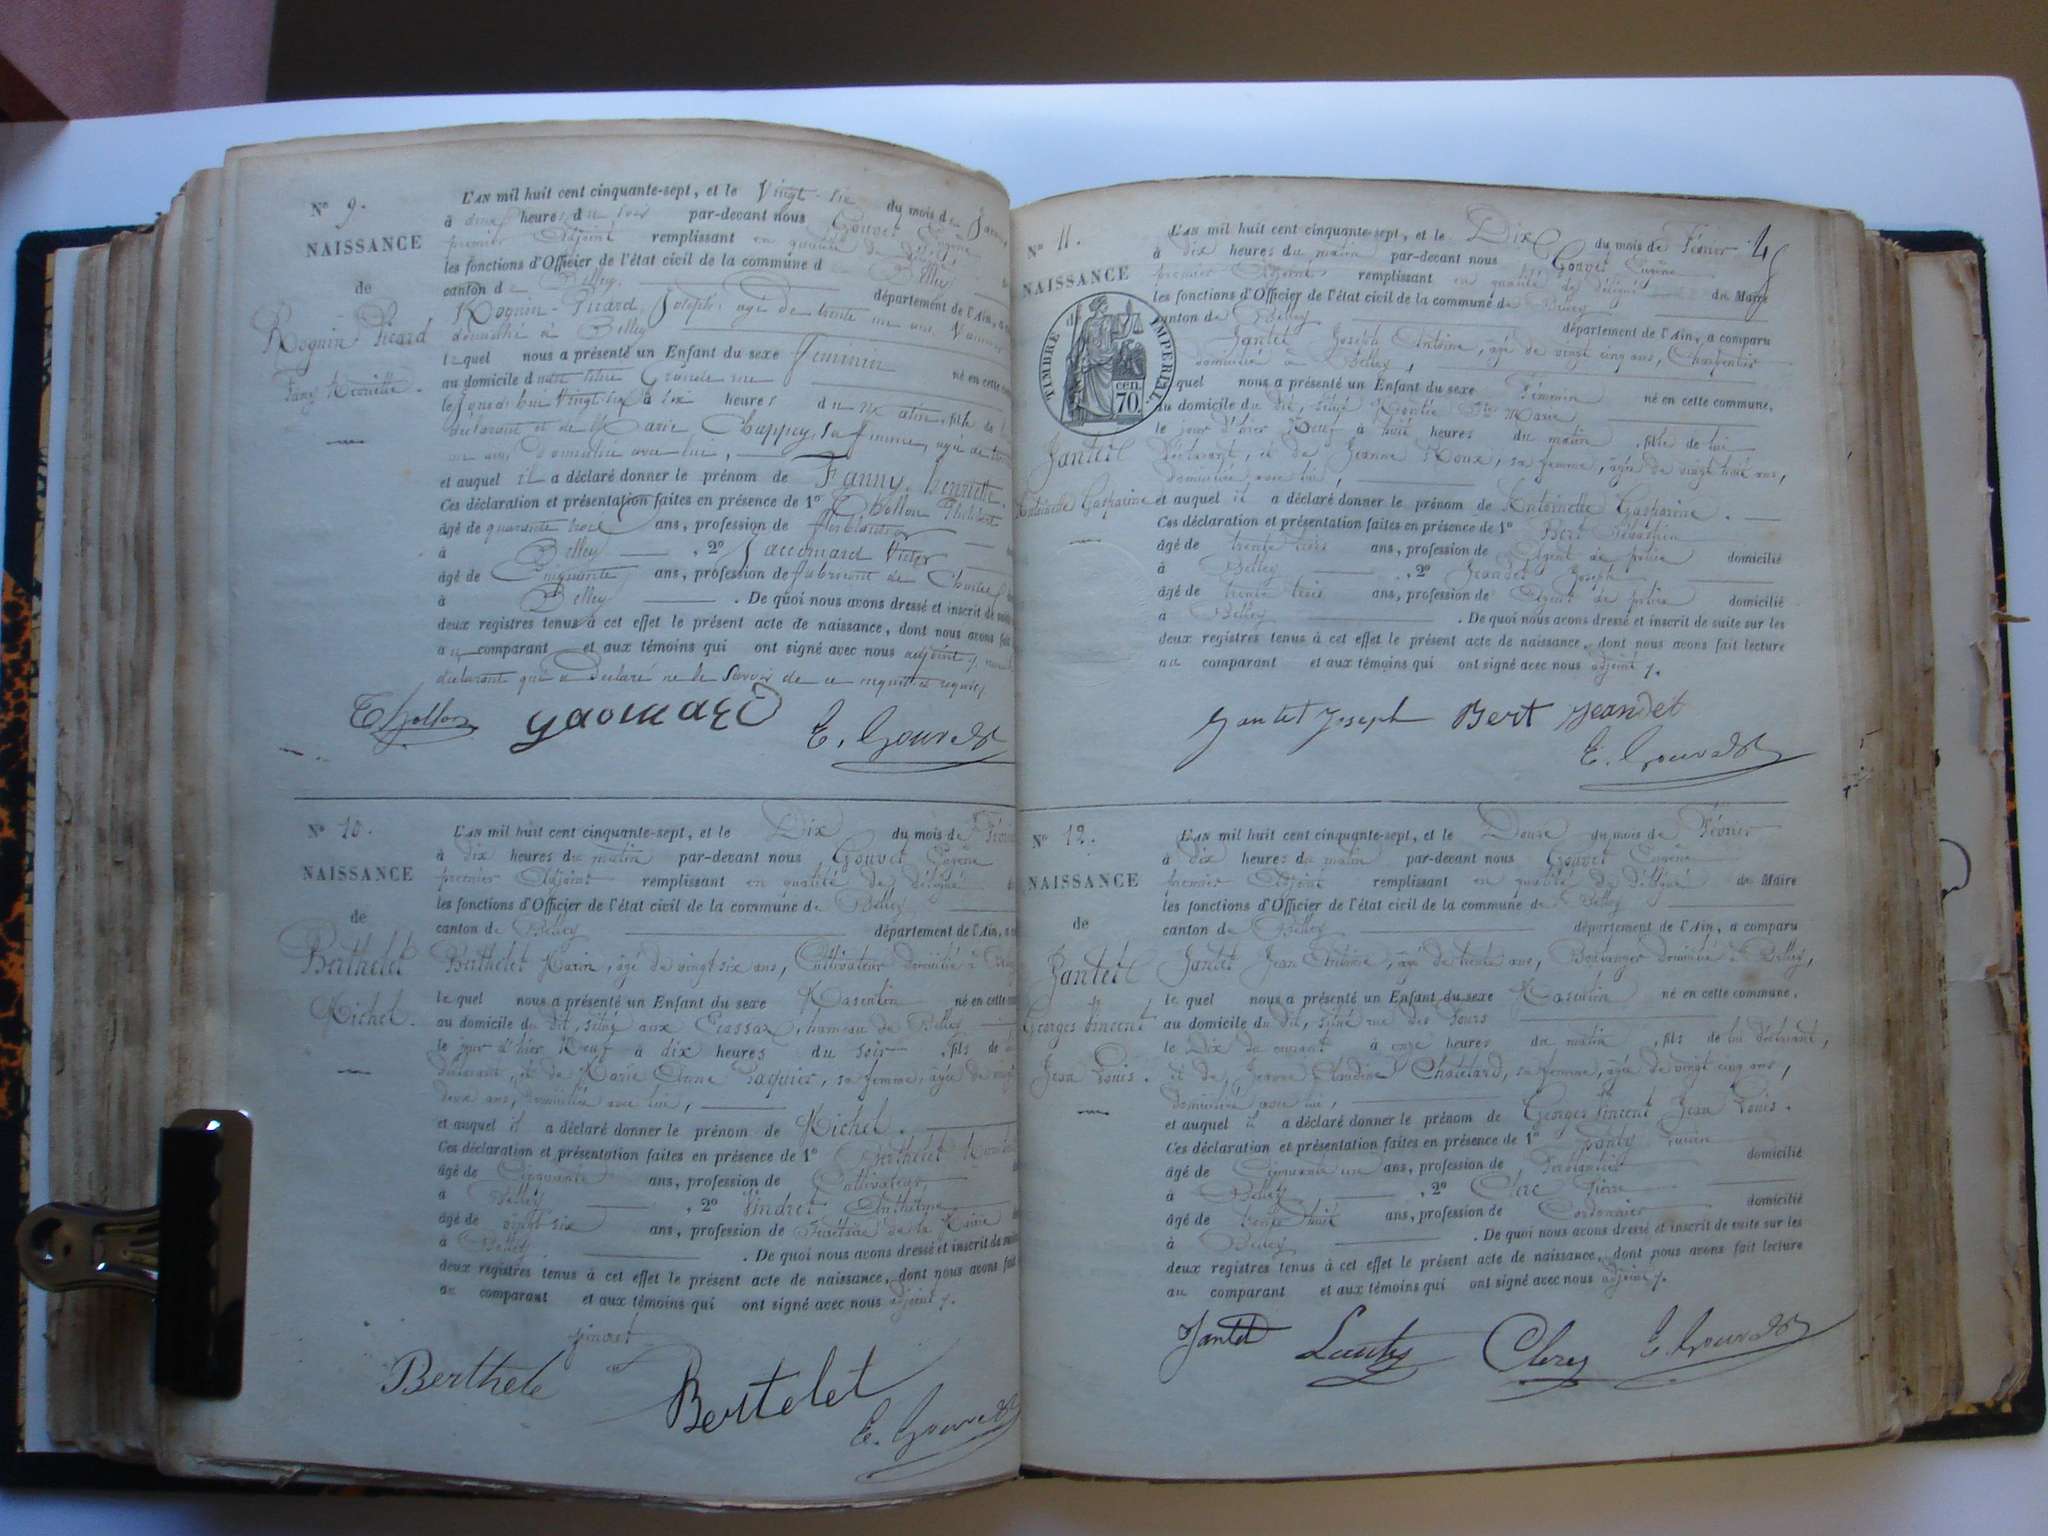 N° 9.
NAISSANCE
de
Rognin Picard
Fany Henriette.
L'AN mil huit cent cinquante-sept, et le Vingt-six du mois de
à deux heures du soir par-devant nous Gouvet Eugène
premier Adjoint remplissant en qualité de délégué
les fonctions d'Officier de l'état civil de la commune d Belley
canton de Belley département de l'Ain, a
Rognin-Picard Joseph, âgé de trente un ans,
domicilié à Belley
lequel nous a présenté un Enfant du sexe Féminin né en cette
au domicile d Grande rue
le jour à six heures du matin, fille de
déclarant et de Marie Chappuy, sa femme, âgée de
un ans, domiciliée avec lui,
et auquel il a déclaré donner le prénom de Fanny Henriette
Ces déclaration et présentation faites en présence de 1° Chollon
âgé de quarante trois ans, profession de ferblantier
à Belley , 2° Jacomard Victor
âgé de Cinquante ans, profession de fabricant de
à Belley . De quoi nous avons dressé et inscrit de
deux registres tenus à cet effet le présent acte de naissance, dont nous avons fait
au comparant et aux témoins qui ont signé avec nous adjoint
déclarant qui a déclaré ne le savoir de ce requis
E. Gouvet
N° 10.
NAISSANCE
de
Berthelet
Michel.
L'AN mil huit cent cinquante-sept, et le Dix du mois de
à dix heures du matin par-devant nous Gouvet Eugène
premier Adjoint remplissant en qualité de délégué
les fonctions d'Officier de l'état civil de la commune de Belley
canton de Belley département de l'Ain, a
Berthelet Marin, âgé de vingt six ans, Cultivateur domicilié à
lequel nous a présenté un Enfant du sexe Masculin né en cette
au domicile du dit, situé aux Ecassaz, hameau de Belley
le jour d'hier Neuf à dix heures du soir, fils de
déclarant, et de Marie Anne Paquier, sa femme, âgée de
deux ans, domiciliée avec lui,
et auquel il a déclaré donner le prénom de Michel.
Ces déclaration et présentation faites en présence de 1° Berthelet
âgé de Cinquante ans, profession de Cultivateur
à Belley , 2° Vindret Anthelme
âgé de vingt six ans, profession de Secrétaire de la Mairie
à Belley . De quoi nous avons dressé et inscrit de
deux registres tenus à cet effet le présent acte de naissance, dont nous avons fait
au comparant et aux témoins qui ont signé avec nous adjoint
Berthele
Bertelet
E. Gouvet
N° 11.
NAISSANCE
de
TIMBRE IMPERIAL
70 cen.
Jantet
Antoinette Gasparine
L'AN mil huit cent cinquante-sept, et le Dix du mois de Février
à dix heures du matin par-devant nous Gouvet Eugène
premier Adjoint remplissant en qualité de délégué du Maire
les fonctions d'Officier de l'état civil de la commune de Belley
canton de Belley département de l'Ain, a comparu
Jantet Joseph Antoine, âgé de vingt cinq ans, Charpentier
domicilié à Belley,
lequel nous a présenté un Enfant du sexe Féminin né en cette commune,
au domicile du dit, situé Montée Ste Marie
le jour d'hier Neuf à huit heures du matin, fille de lui
Déclarant, et de Jeanne Roux, sa femme, âgée de vingt huit ans,
domiciliée avec lui,
et auquel il a déclaré donner le prénom de Antoinette Gasparine.
Ces déclaration et présentation faites en présence de 1° Bert Sébastien
âgé de trente trois ans, profession de Agent de police domicilié
à Belley , 2° Jeandet Joseph
âgé de trente trois ans, profession de Agent de police domicilié
à Belley . De quoi nous avons dressé et inscrit de suite sur les
deux registres tenus à cet effet le présent acte de naissance, dont nous avons fait lecture
au comparant et aux témoins qui ont signé avec nous adjoint
Jantet Joseph Bert Jeandet
E. Gouvet
N° 12.
NAISSANCE
de
Jantet
Georges Vincent
Jean Louis.
L'AN mil huit cent cinquante-sept, et le Douze du mois de Février
à dix heures du matin par-devant nous Gouvet Eugène
premier Adjoint remplissant en qualité de délégué du Maire
les fonctions d'Officier de l'état civil de la commune de Belley
canton de Belley département de l'Ain, a comparu
Jantet Jean Antoine, âgé de trente ans, Boulanger domicilié à Belley,
lequel nous a présenté un Enfant du sexe Masculin né en cette commune,
au domicile du dit, situé rue des Tours
le Dix du courant à onze heures du matin, fils de lui déclarant,
et de Jeanne Claudine Chatelard, sa femme, âgée de vingt cinq ans,
domiciliée avec lui,
et auquel il a déclaré donner le prénom de Georges Vincent Jean Louis.
Ces déclaration et présentation faites en présence de 1°
âgé de Cinquante un ans, profession de Ferblantier domicilié
à Belley , 2° Clerc Pierre
âgé de trente huit ans, profession de Cordonnier domicilié
à Belley . De quoi nous avons dressé et inscrit de suite sur les
deux registres tenus à cet effet le présent acte de naissance, dont nous avons fait lecture
au comparant et aux témoins qui ont signé avec nous adjoint
Jantet
E. Gouvet